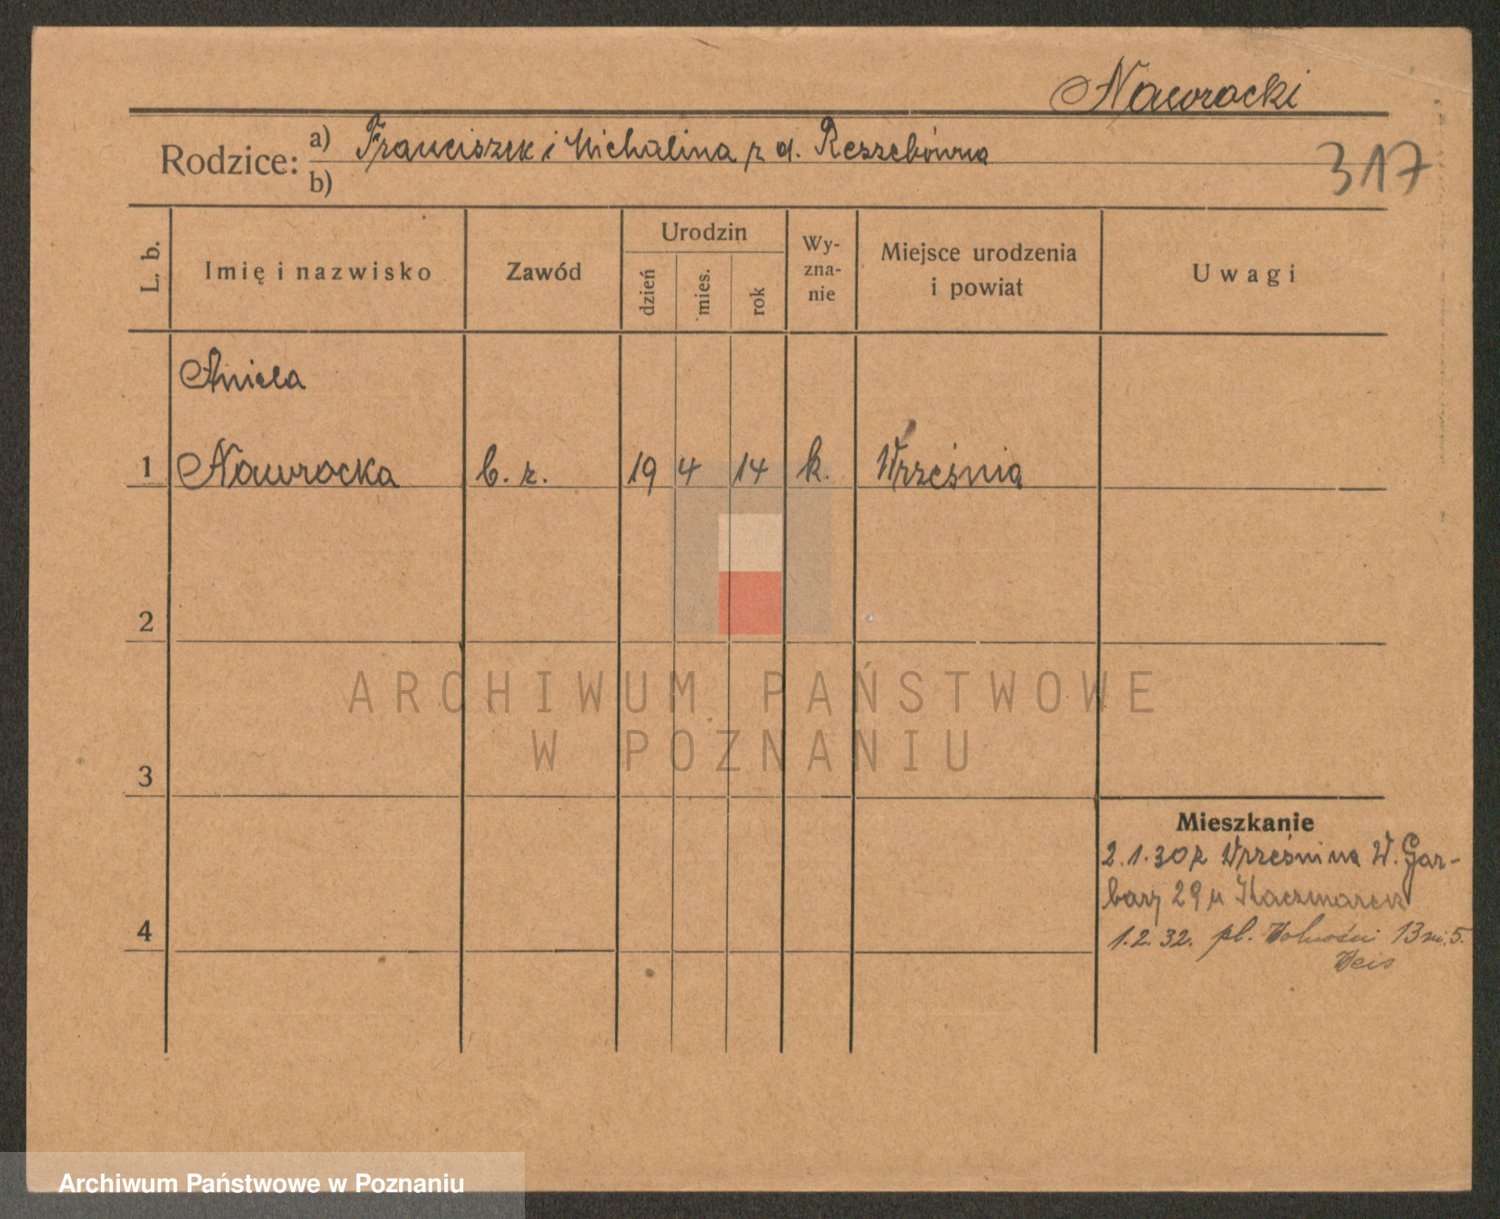 Nawrocki
Rodzice: a) Franciszek i Michalina z d.
b)
317
L. b.
Imię i nazwisko
Zawód
Urodzin
dzień
mies.
rok
Wy-
zna-
nie
Miejsce urodzenia
i powiat
Uwagi
Aniela
1 Nawrocka b. z. 19 4 14 k. Września
2
ARCHIWUM PAŃSTWOWE
W POZNANIU
3
Mieszkanie
2.1.30 z Wrześni na W. Gar-
bary 29 u Kaczmarek
4
1.2.32. pl. Wolności 13 m. 5.
Weis
Archiwum Państwowe w Poznaniu